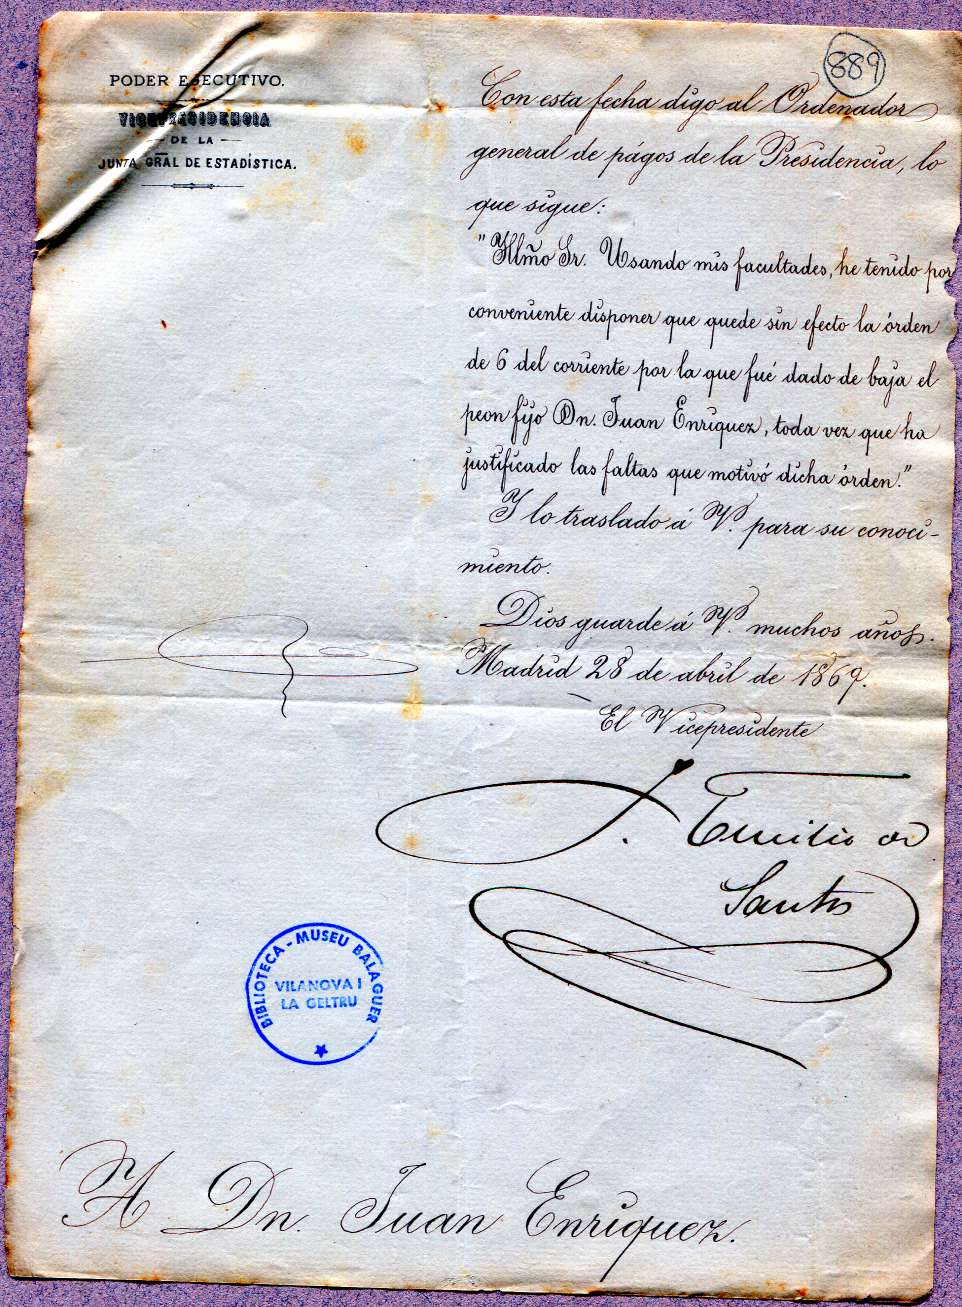 PODER EJECUTIVO.
VICEPRESIDENCIA
DE LA
JUNTA GRAL DE ESTADÍSTICA.
889
Con esta fecha digo al Ordenador
general de págos de la Presidencia, lo
que sigue:
"Yllmo Sr. Usando mis facultades, he tenido por
conveniente disponer que quede sin efecto la órden
de 6 del corriente por la que fué dado de baja el
peon fijo Dn. Juan Enriquez, toda vez que ha
justificado las faltas que motivó dicha órden."
Y lo traslado á V. para su conoci-
miento.
Dios guarde á V. muchos años.
Madrid 28 de abril de 1869.
El Vicepresidente
F. Emilio de
Santos
BIBLIOTECA - MUSEU BALAGUER
VILANOVA I
LA GELTRU
A Dn. Juan Enriquez.